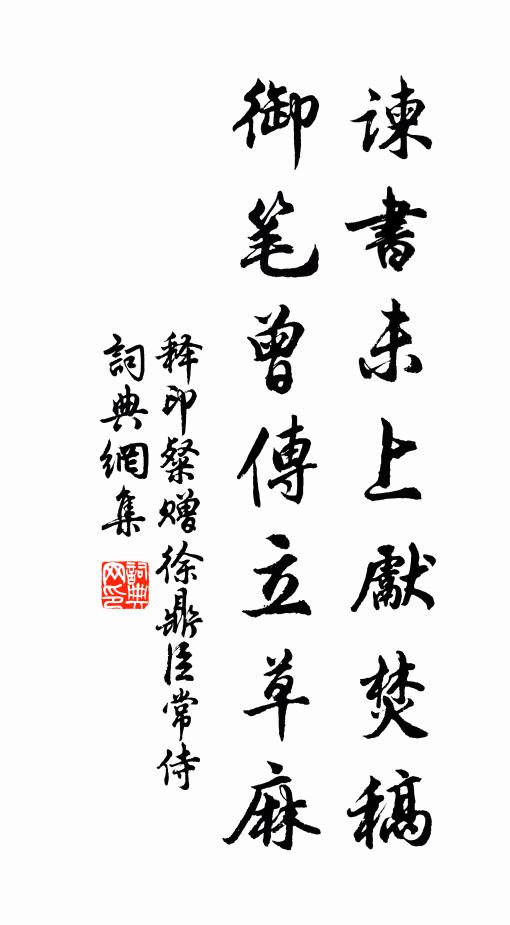 諫書未上獻焚稿
御笔曾傳立草麻
释印粲赠徐鼎臣常侍
詞典網集
詞典网印